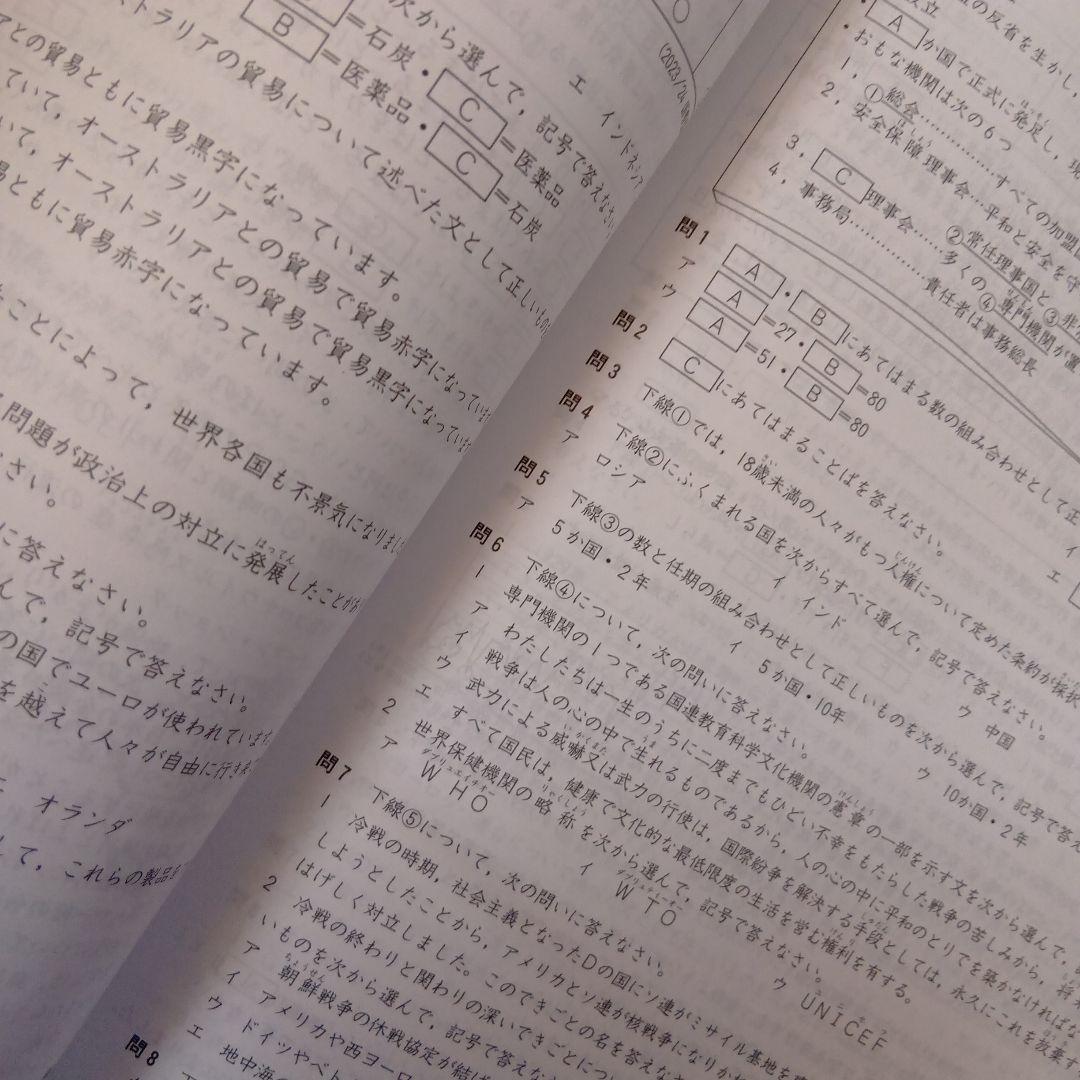 次から選んで，記号で答えなさい
B＝石炭・C＝医薬品
B＝医薬品・C＝石炭
エ インドネシア
(2023/24
ラリアの貿易について述べた文として正しいもの
アとの貿易ともに貿易黒字になっています。
ていて，オーストラリアとの貿易で貿易赤字になっています
いて，オーストラリアとの貿易で貿易黒字になっています
易ともに貿易赤字になっています。
たことによって，世界各国も不景気になりました
問題が政治上の対立に発展したことが
さい。
に答えなさい。
んで，記号で答えなさい。
の国でユーロが使われています
を越えて人々が自由に行き
オランダ
して，これらの製品を
の反省を生かし，
A か国で正式に発足し，現
・おもな機関は次の6つ
1，①総会……すべての加盟
2，安全保障理事会…平和と安全を守
②常任理事国と，③非
3，C理事会……多くの④専門機関が置
4，事務局……責任者は事務総長
問1 A・Bにあてはまる数の組み合わせとして正
ア A＝27・B＝80 イ
ウ A＝51・B＝80 エ
問2 Cにあてはまることばを答えなさい。
問3 下線①では，18歳未満の人々がもつ人権について定めた条約が採択
問4 下線②にふくまれる国を次からすべて選んで，記号で答えなさい。
ア ロシア イ インド ウ 中国
問5 下線③の数と任期の組み合わせとして正しいものを次から選んで，記号で答え
ア 5か国・2年 イ 5か国・10年 ウ 10か国・2年
問6 下線④について，次の問いに答えなさい。
1 専門機関の1つである国連教育科学文化機関の憲章の一部を示す文を次から選んで，
ア わたしたちは一生のうちに二度までもひどい不幸をもたらした戦争の苦しみから，将来
イ 戦争は人の心の中で生れるものであるから，人の心の中に平和のとりでを築かなければな
ウ 武力による威嚇又は武力の行使は，国際紛争を解決する手段としては，永久にこれを放棄す
エ すべて国民は，健康で文化的な最低限度の生活を営む権利を有する。
2 世界保健機関の略称を次から選んで，記号で答えなさい。
ア WHO イ WTO ウ UNICEF
問7 下線⑤について，次の問いに答えなさい。
1 冷戦の時期，社会主義となったDの国にソ連がミサイル基地を
しようとしたことから，アメリカとソ連が核戦争になりか
はげしく対立しました。このできごとの名を答えな
2 冷戦の終わりと関わりの深いできごとについ
いものを次から選んで，記号で答えな
ア 朝鮮戦争の休戦協定が結ば
イ アメリカや西ヨーロ
ウ ドイツやベト
エ 地中海の
問8